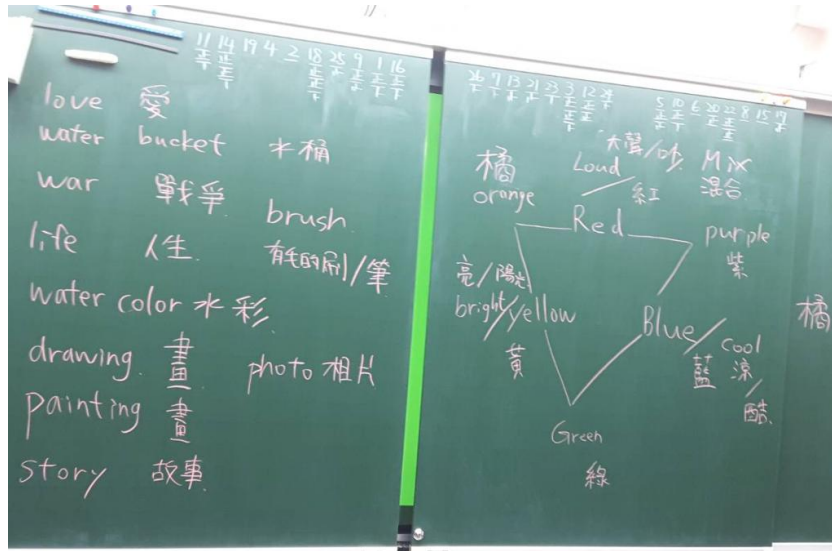 11 14 19 4 2 18 25 9 1 16
正 正 正 正 正 正 正
love 愛
water bucket 水桶
war 戰爭
brush
life 人生
有毛的刷/筆
water color 水彩
drawing 畫
photo 相片
painting 畫
story 故事
26 7 13 21 23 3 12 24
5 10 6 20 22 8 15 17
大聲/吵
橘
Loud
Mix
orange
紅
混合
Red
purple
紫
亮/陽光
bright/yellow
Blue
橘
黃
藍
cool
涼/酷
Green
綠